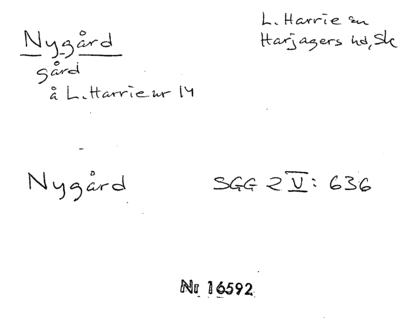 Nygård
gård
å L. Harrie nr 14
L. Harrie sn
Harjagers hd, Sk
Nygård
SGG 2 V: 636
Nr 16592